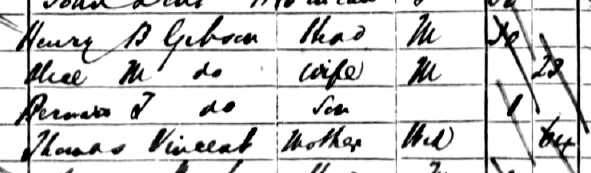 Henry B Gibson Head M 30
Alice M do wife M 23
Bernard J do son 1
Thomas Vincent Mother Wid 64